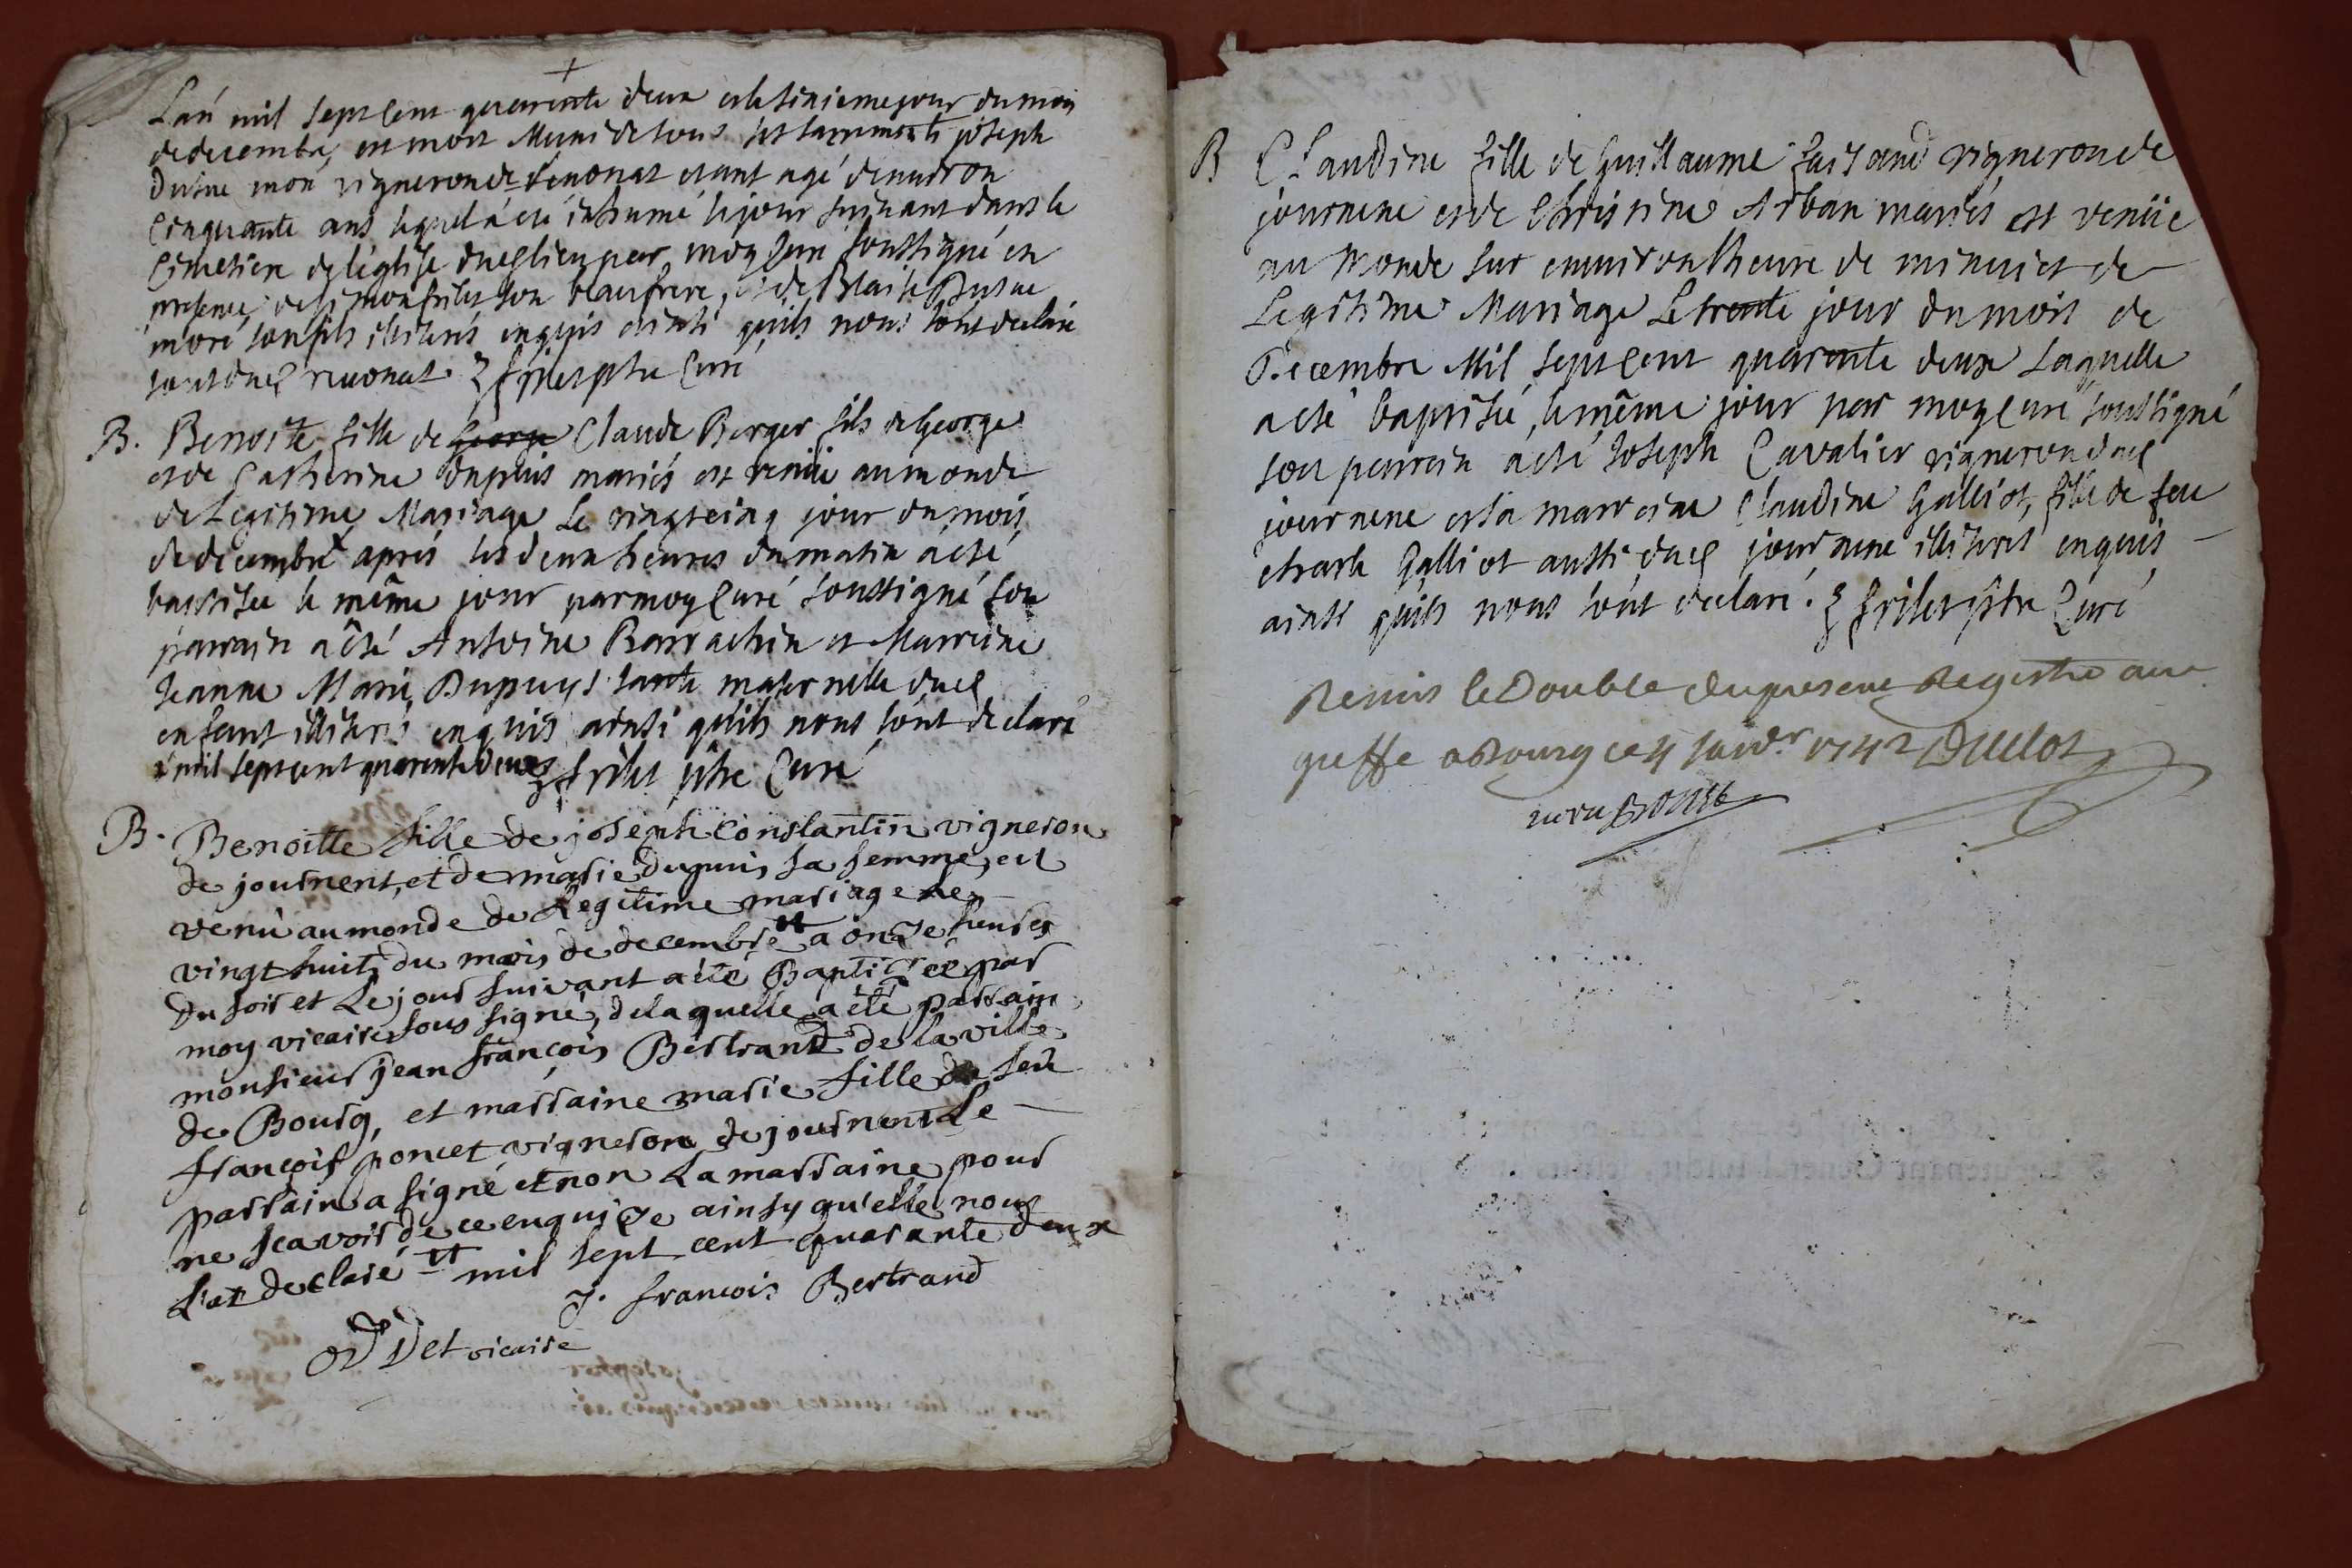 L'an mil sept cent quarente deux et le sixieme jour du mois
de decembre, est mort Muni de tous ses sacrements joseph
vigneron de revonat etant agé d'environ
Cinquante ans lequel a eté inhumé le jour suivant dans le
Cimetiere de l'église dud lieu par moy Curé soussigné en
presence, de simon frilet son beaufrere, et de Blaise
son fils illiteris enquis ainsi quils nous l'ont declaré
aud revonat. frilet ptre Curé
B. Benoite fille de George Claude Berger fils de George
et de Catherine dupuis mariés est venüe au monde
de Legitime Mariage Le vingt cinq jour du mois
de decembre aprés les deux heures du matin a eté
baptisée le même jour par moy Curé soussigné son
parrain a êté Antoine Barrachin et Marreine
Jeanne Marie Dupuys tante maternelle dud
enfant illiteris enquis ainsi quils nous l'ont declaré
mil sept cent quarente deux frilet ptre Curé
B. Benoitte fille de joseph Constantin vigneron
de journent, et de marie dupuis sa femme, est
venu au monde de Legitime mariage le
vingt huit du mois de decembre tt a onze heures
du soir et Le jour suivant a été Baptizéé par
moy vicaire sous signé, de laquelle a été parrain
monsieur jean françois Bertrand de la ville
de Bourg, et marraine marie fille de feu
françois poncet vigneron de journent Le
parrain a signé et non La marraine pour
ne scavoir de ce enquize ainsy qu'elle nous
L'at declaré tt mil sept cent quarante deux
J. francois Bertrand
Odet vicaire
B Claudine fille de Guillaume faisand vigneron de
journene et de Christine Arban mariés est venüe
au monde sur environ l'heure de minuict de
Legitime Mariage Le trente jour du mois de
Decembre Mil sept cent quarente deux Laquelle
a esté baptisée, le même jour par moy curé soussigné
son parrein a été Joseph Cavalier vigneron dud
journene et sa marreine Claudine Galliot, fille de feu
charle Galliot aussi dud journene illiteris enquis
ainsi quils nous l'ont declaré. frilet ptre Curé
Remis le Double du present Registre au
greffe a Bourg ce 4 janvr 1742 Duclot